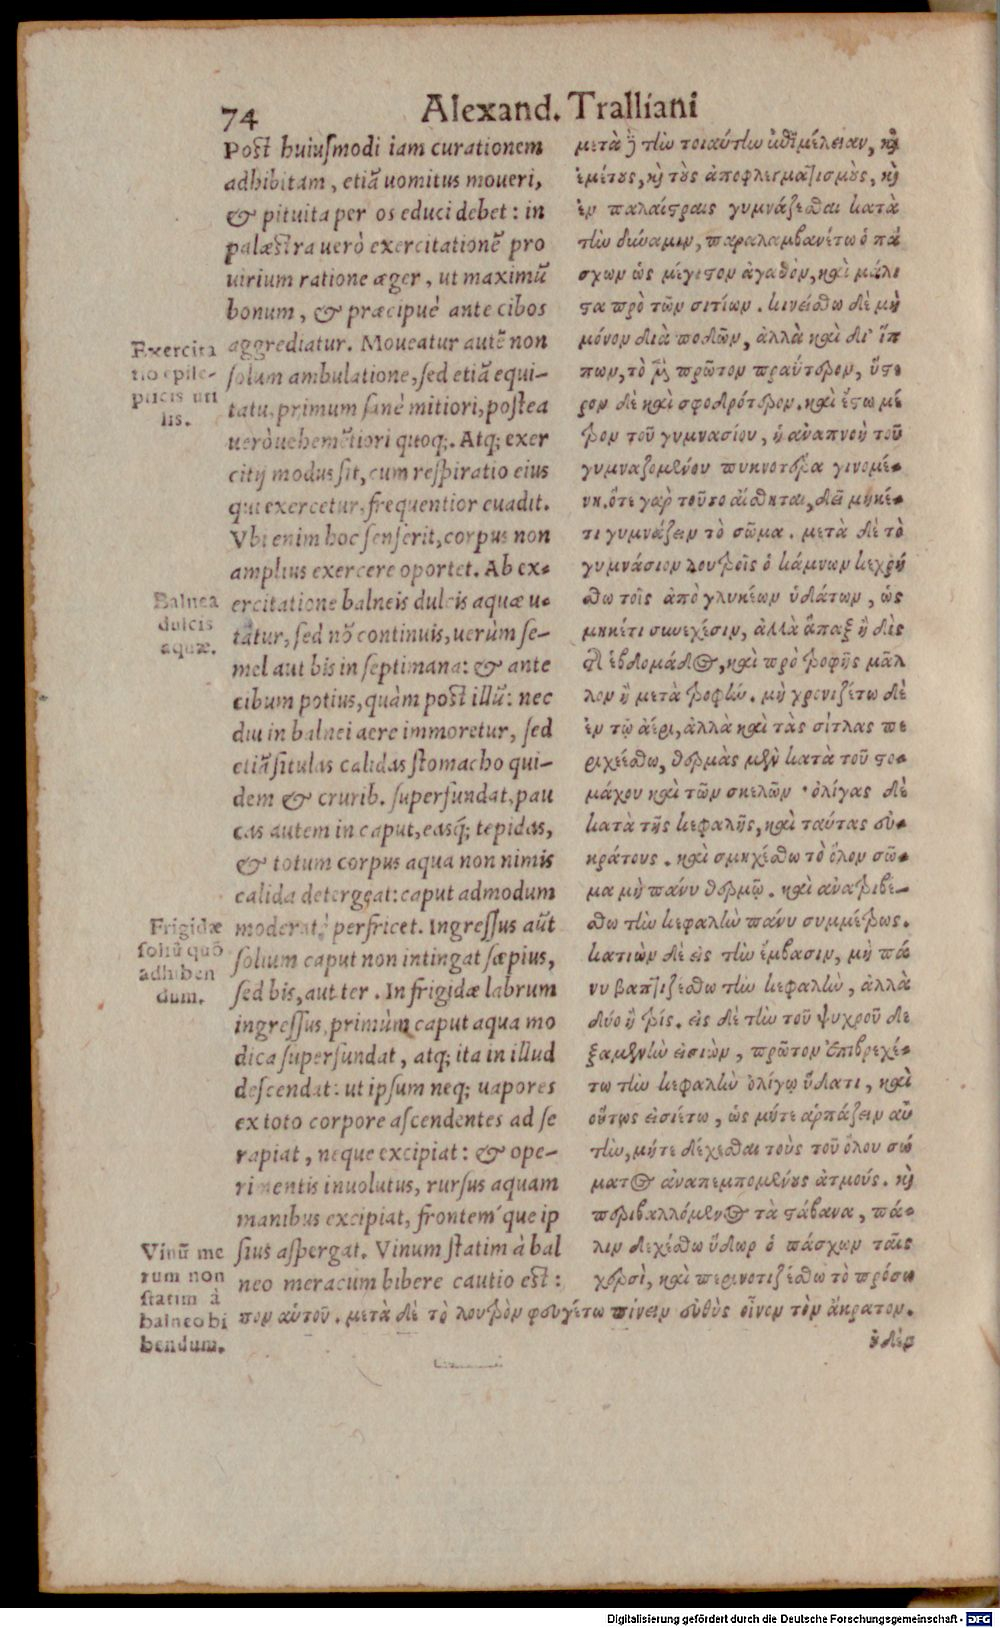 74
Alexand. Tralliani
Post huiusmodi iam curationem
adhibitam, etiã uomitus moueri,
& pituita per os educi debet: in
palæstra uerò exercitationē pro
uirium ratione æger, ut maximū
bonum, & præcipuè ante cibos
aggrediatur. Moueatur autē non
solum ambulatione, sed etiã equi-
tatu, primum sanè mitiori, postea
uerò uehemētiori quoq;. Atq; exer
citij modus sit, cum respiratio eius
qui exercetur, frequentior euadit.
Vbi enim hoc senserit, corpus non
amplius exercere oportet. Ab ex-
ercitatione balneis dulcis aquæ u-
tatur, sed nõ continuis, uerùm se-
mel aut bis in septimana: & ante
cibum potius, quàm post illū: nec
diu in balnei aere immoretur, sed
etiã situlas calidas stomacho qui-
dem & crurib. superfundat, pau
cas autem in caput, easq́; tepidas,
& totum corpus aqua non nimis
calida detergeat: caput admodum
moderatè perfricet. Ingressus aūt
solium caput non intingat sæpius,
sed bis, aut ter. In frigidæ labrum
ingressus, primùm caput aqua mo
dica superfundat, atq; ita in illud
descendat: ut ipsum neq; uapores
ex toto corpore ascendentes ad se
rapiat, neque excipiat: & ope-
rimentis inuolutus, rursus aquam
manibus excipiat, frontem que ip
sius aspergat. Vinum statim à bal
neo meracum bibere cautio est:
Exercita
tio epile-
pticis uti
lis.
Balnea
dulcis
aquæ.
Frigidæ
soliū quõ
adhiben
dum.
Vinū me
rum non
statim à
balneo bi
bendum.
μετὰ ἢ τὴν τοιαύτην ἐπιμέλειαν, καὶ
ἐμέτους, καὶ τοὺς ἀποφλεγματισμοὺς, καὶ
ἐν παλαίστραις γυμνάζεσθαι κατὰ
τὴν δύναμιν, παραλαμβανέτω ὁ πά
σχων ὡς μέγιστον ἀγαθὸν, καὶ μάλι
στα πρὸ τῶν σιτίων. κινείσθω δὲ μὴ
μόνον διὰ ποδῶν, ἀλλὰ καὶ δι' ἵπ
πων, τὸ μὲν πρῶτον πραΰτερον, ὕστε
ρον δὲ καὶ σφοδρότερον. καὶ ἔστω μέ
τρον τοῦ γυμνασίου, ἡ ἀναπνοὴ τοῦ
γυμναζομένου πυκνοτέρα γινομέ-
νη. ὅτε γὰρ τοῦτο αἴσθηται, δεῖ μηκέ-
τι γυμνάζειν τὸ σῶμα. μετὰ δὲ τὸ
γυμνάσιον λουτροῖς ὁ κάμνων κεχρή
σθω τοῖς ἀπὸ γλυκέων ὑδάτων, ὡς
μηκέτι συνεχέσιν, ἀλλὰ ἅπαξ ἢ δὶς
τῆς ἑβδομάδος, καὶ πρὸ τροφῆς μᾶλ
λον ἢ μετὰ τροφὴν. μὴ χρονιζέτω δὲ
ἐν τῷ ἀέρι, ἀλλὰ καὶ τὰς σίτλας πε
ριχείσθω, θερμὰς μὲν κατὰ τοῦ στο-
μάχου καὶ τῶν σκελῶν · ὀλίγας δὲ
κατὰ τῆς κεφαλῆς, καὶ ταύτας εὐ-
κράτους. καὶ σμηχέσθω τὸ ὅλον σῶ-
μα μὴ πάνυ θερμῷ. καὶ ἀνατριβέ-
σθω τὴν κεφαλὴν πάνυ συμμέτρως.
κατιὼν δὲ εἰς τὴν ἔμβασιν, μὴ πά
νυ βαπτιζέσθω τὴν κεφαλὴν, ἀλλὰ
δύο ἢ τρίς. εἰς δὲ τὴν τοῦ ψυχροῦ δε
ξαμενὴν εἰσιὼν, πρῶτον ἐπιβρεχέ-
τω τὴν κεφαλὴν ὀλίγῳ ὕδατι, καὶ
οὕτως εἰσιέτω, ὡς μήτε ἁρπάζειν αὐ
τὴν, μήτε δέχεσθαι τοὺς τοῦ ὅλου σώ
ματος ἀναπεμπομένους ἀτμούς. καὶ
περιβαλλόμενος τὰ σάβανα, πά-
λιν δεχέσθω ὕδωρ ὁ πάσχων ταῖς
χερσὶ, καὶ περινοτιζέσθω τὸ πρόσω
πον αὑτοῦ. μετὰ δὲ τὸ λουτρὸν φευγέτω πίνειν εὐθὺς οἶνον τὸν ἄκρατον.
οὐδὲν
Digitalisierung gefördert durch die Deutsche Forschungsgemeinschaft - DFG